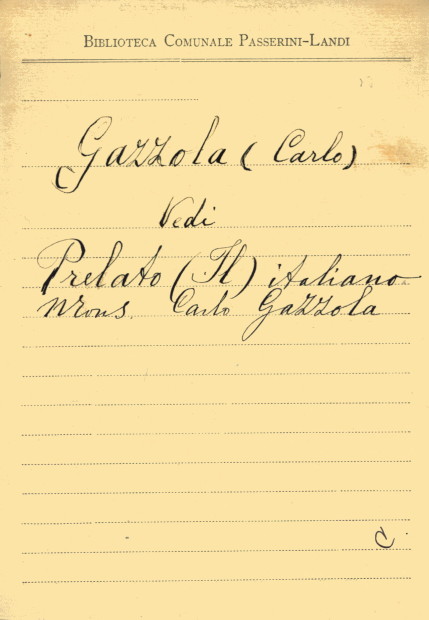 BIBLIOTECA COMUNALE PASSERINI-LANDI
Gazzola (Carlo)
Vedi
Prelato (Il) italiano
Mons. Carlo Gazzola
C.